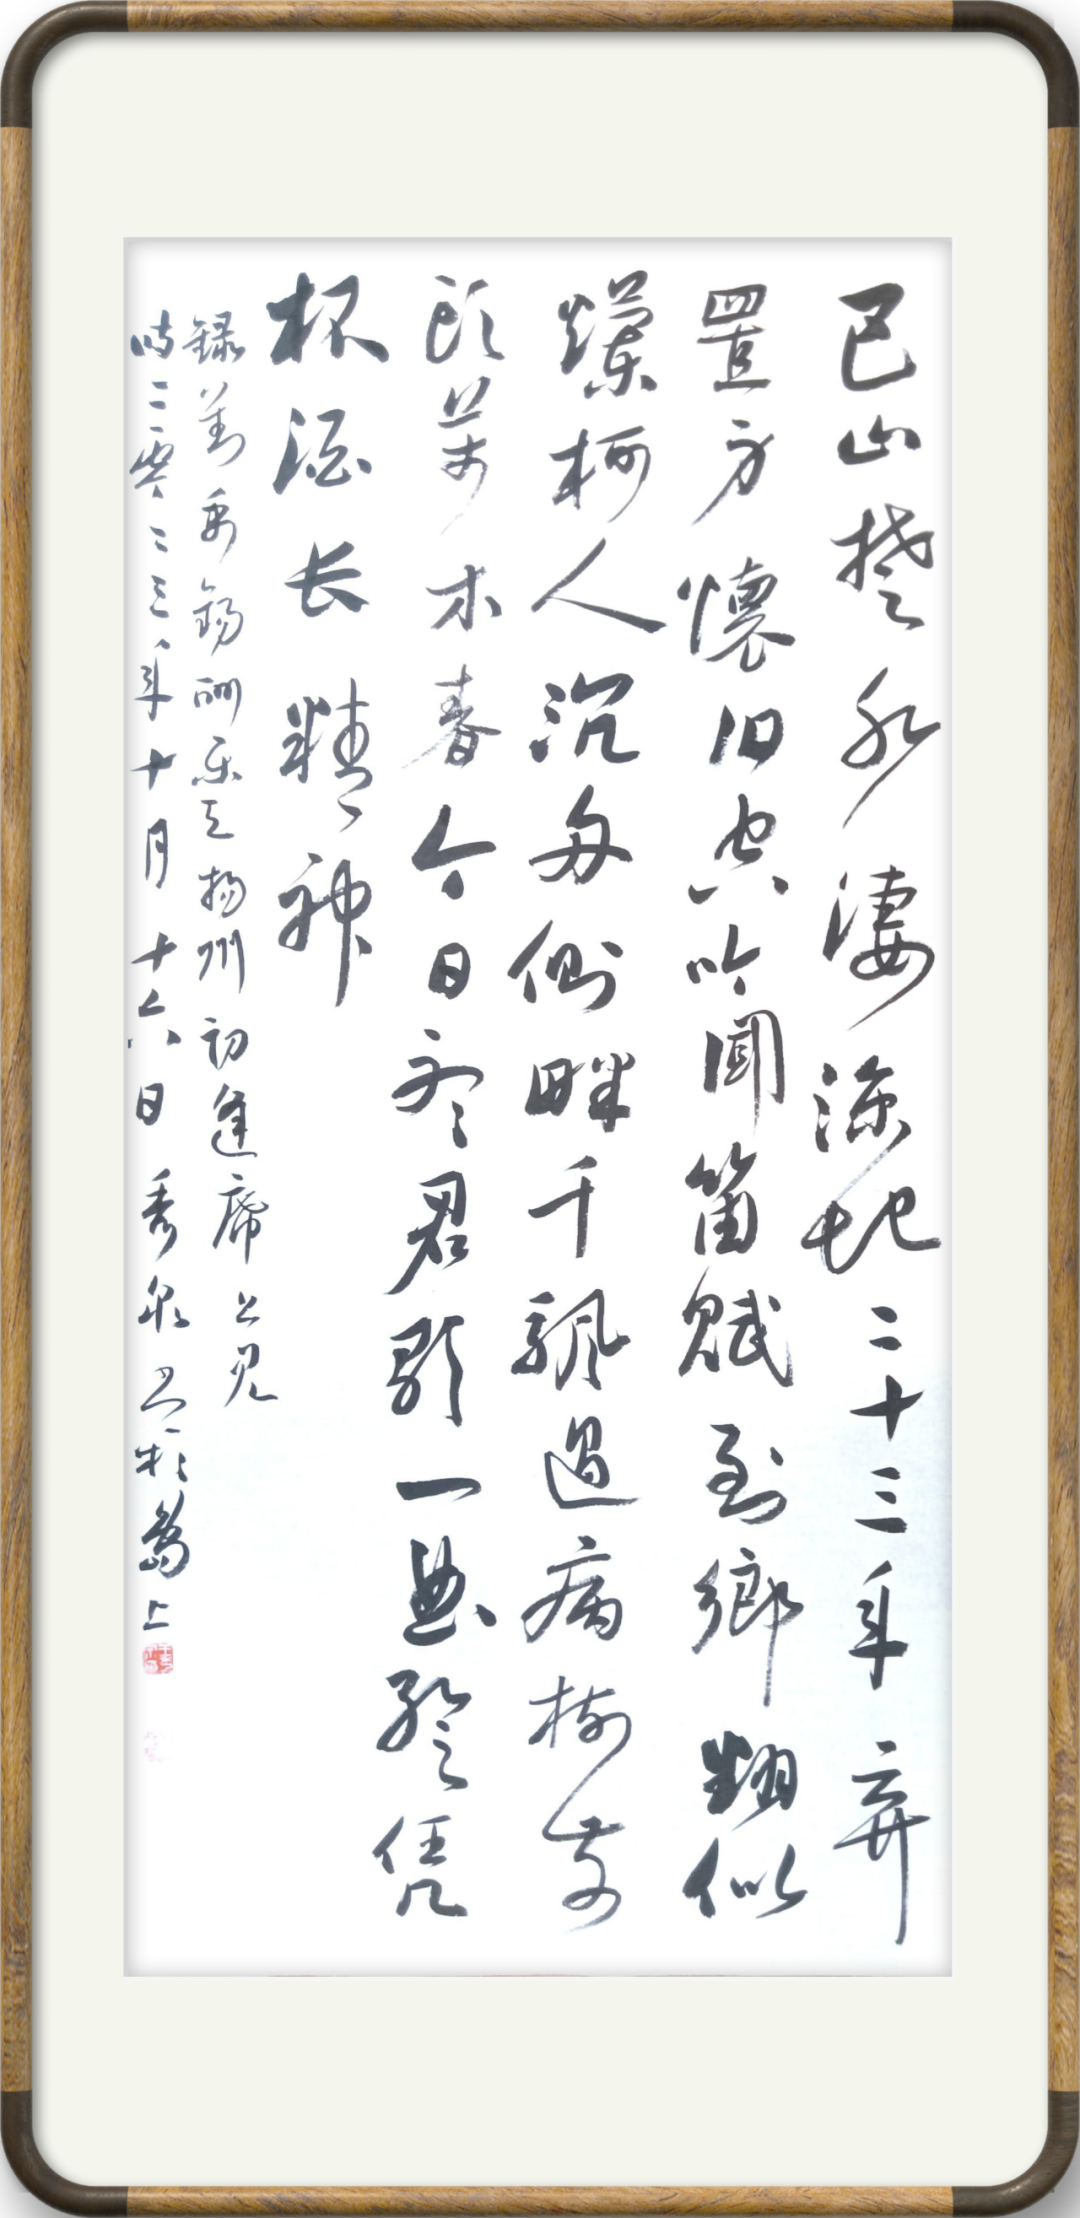 巴山楚水淒涼地二十三年弃
置身懷旧空吟聞笛賦到鄉翻似
爛柯人沉舟側畔千颿過病樹前
頭萬木春今日聽君歌一曲暫凭
杯酒长精神
錄劉禹錫酬樂天揚州初逢席上見
時二零二三年十月十六日秀泉书於上